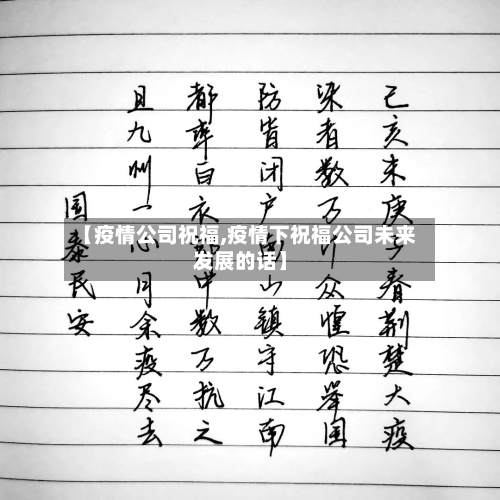 己亥末庚子春荆楚大疫
染者数万计众惶恐举国
防皆闭户南山镇守江南
都率白衣郎中数万抗之
且九州一心月余疫尽去
国泰民安
【疫情公司祝福,疫情下祝福公司未来
发展的话】